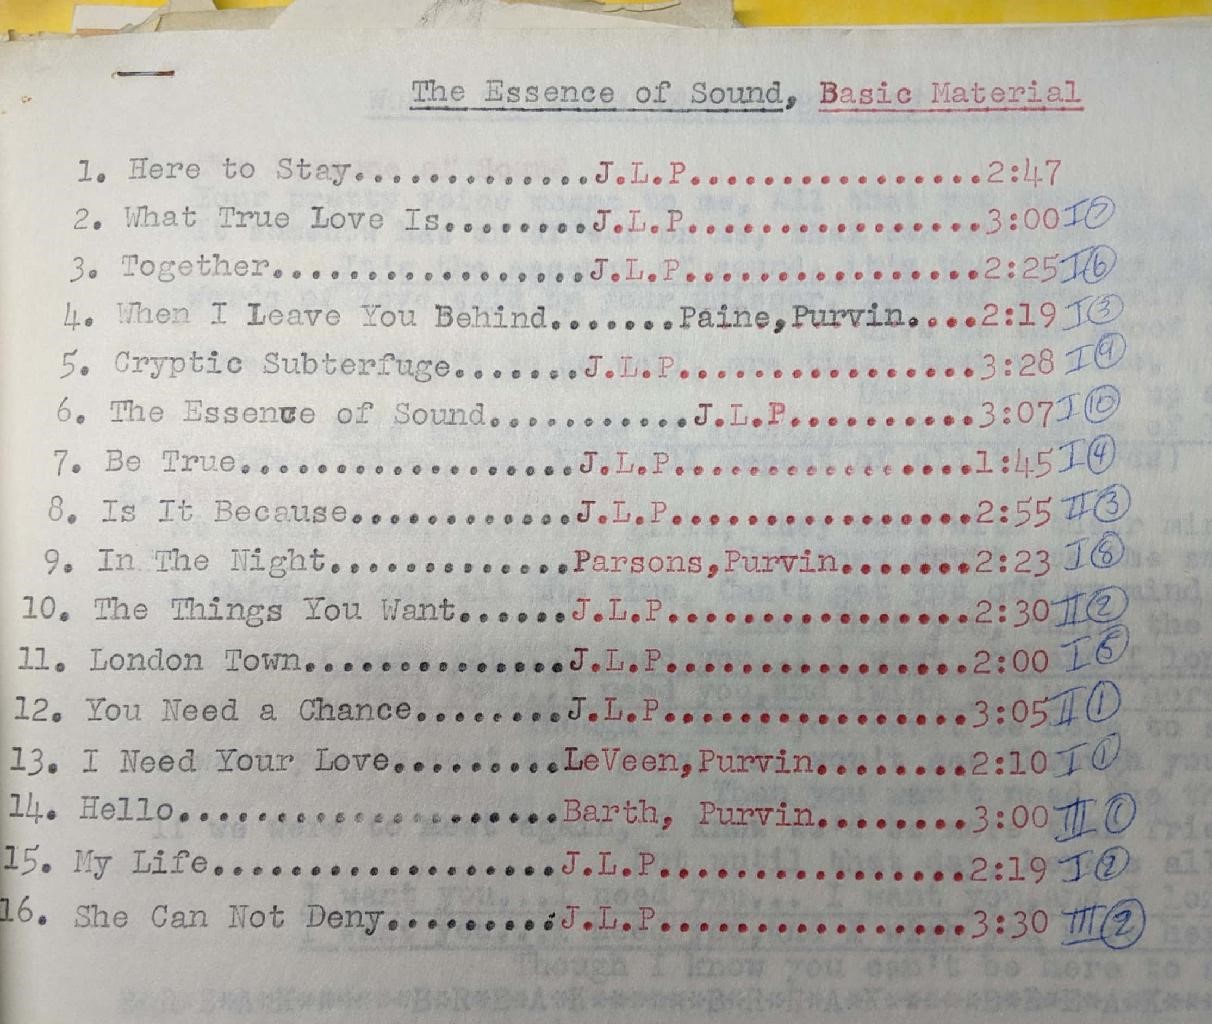 The Essence of Sound, Basic Material
1. Here to Stay.............J.L.P................2:47
2. What True Love Is........J.L.P................3:00 I 7
3. Together.................J.L.P................2:25 I 6
4. When I Leave You Behind.......Paine,Purvin....2:19 I 3
5. Cryptic Subterfuge.......J.L.P................3:28 I 9
6. The Essence of Sound...........J.L.P..........3:07 I 10
7. Be True...................J.L.P................1:45 I 4
8. Is It Because............J.L.P................2:55 II 3
9. In The Night.............Parsons,Purvin.......2:23 I 8
10. The Things You Want......J.L.P................2:30 II 2
11. London Town.............J.L.P................2:00 I 5
12. You Need a Chance........J.L.P................3:05 II 1
13. I Need Your Love.........LeVeen,Purvin........2:10 I 1
14. Hello....................Barth, Purvin........3:00 III 1
15. My Life..................J.L.P................2:19 I 2
16. She Can Not Deny.........J.L.P................3:30 III 2